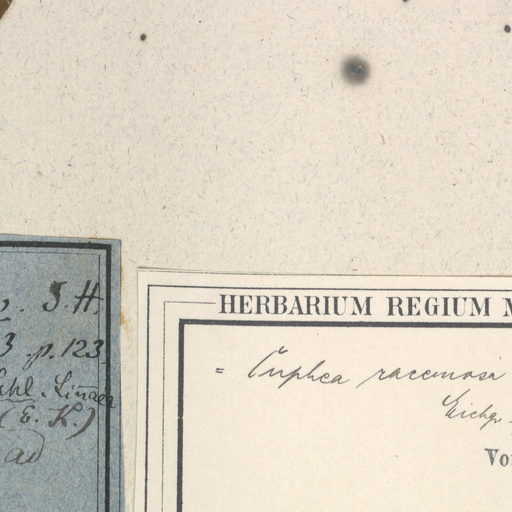 J. H.
3 p. 123
Linnaea
(E. K.)
ad
HERBARIUM REGIUM M
= Cuphea racemosa